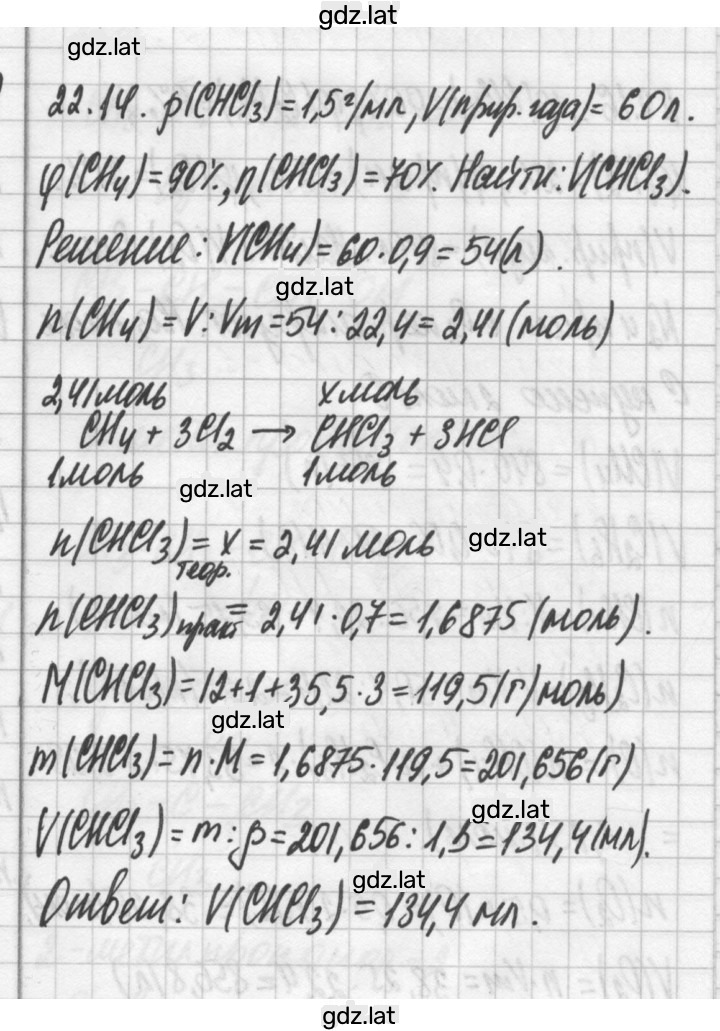 gdz.lat
gdz.lat
22.14. ρ(CHCl₃) = 1,5 г/мл, V(прир. газа) = 60 л.
φ(CH₄) = 90%, η(CHCl₃) = 70%. Найти: V(CHCl₃).
Решение: V(CH₄) = 60 · 0,9 = 54 (л).
gdz.lat
n(CH₄) = V : Vm = 54 : 22,4 = 2,41 (моль)
2,41 моль x моль
CH₄ + 3Cl₂ → CHCl₃ + 3HCl
1 моль 1 моль
gdz.lat
n(CHCl₃)теор. = x = 2,41 моль
gdz.lat
n(CHCl₃)практ = 2,41 · 0,7 = 1,6875 (моль).
M(CHCl₃) = 12 + 1 + 35,5 · 3 = 119,5 (г/моль)
gdz.lat
m(CHCl₃) = n · M = 1,6875 · 119,5 = 201,656 (г)
gdz.lat
V(CHCl₃) = m : ρ = 201,656 : 1,5 = 134,4 (мл).
gdz.lat
Ответ: V(CHCl₃) = 134,4 мл.
gdz.lat